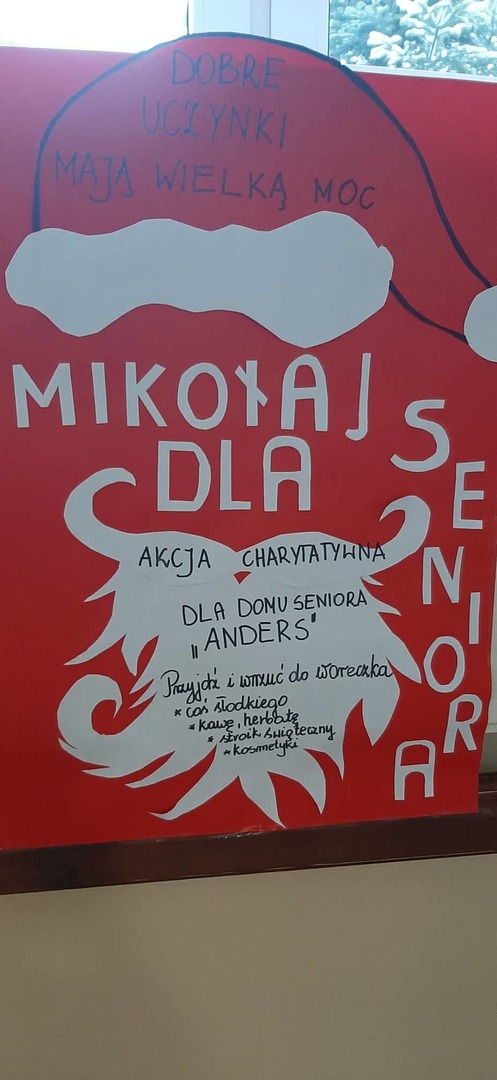 DOBRE
UCZYNKI
MAJĄ WIELKĄ MOC
MIKOŁAJ
DLA
SENIORA
AKCJA CHARYTATYWNA
DLA DOMU SENIORA
„ANDERS"
Przyjdź i wrzuć do woreczka
* coś słodkiego
* kawę, herbatę
* stroik świąteczny
* kosmetyki